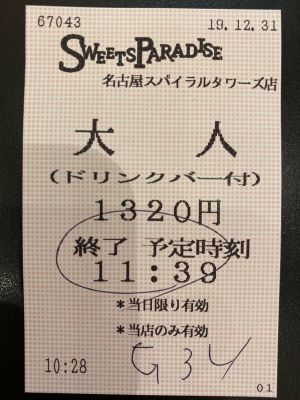 67043 19.12.31
SWEETS PARADISE
名古屋スパイラルタワーズ店
大人
(ドリンクバー付)
1320円
終了 予定時刻
11:39
*当日限り有効
*当店のみ有効
10:28 G34
01